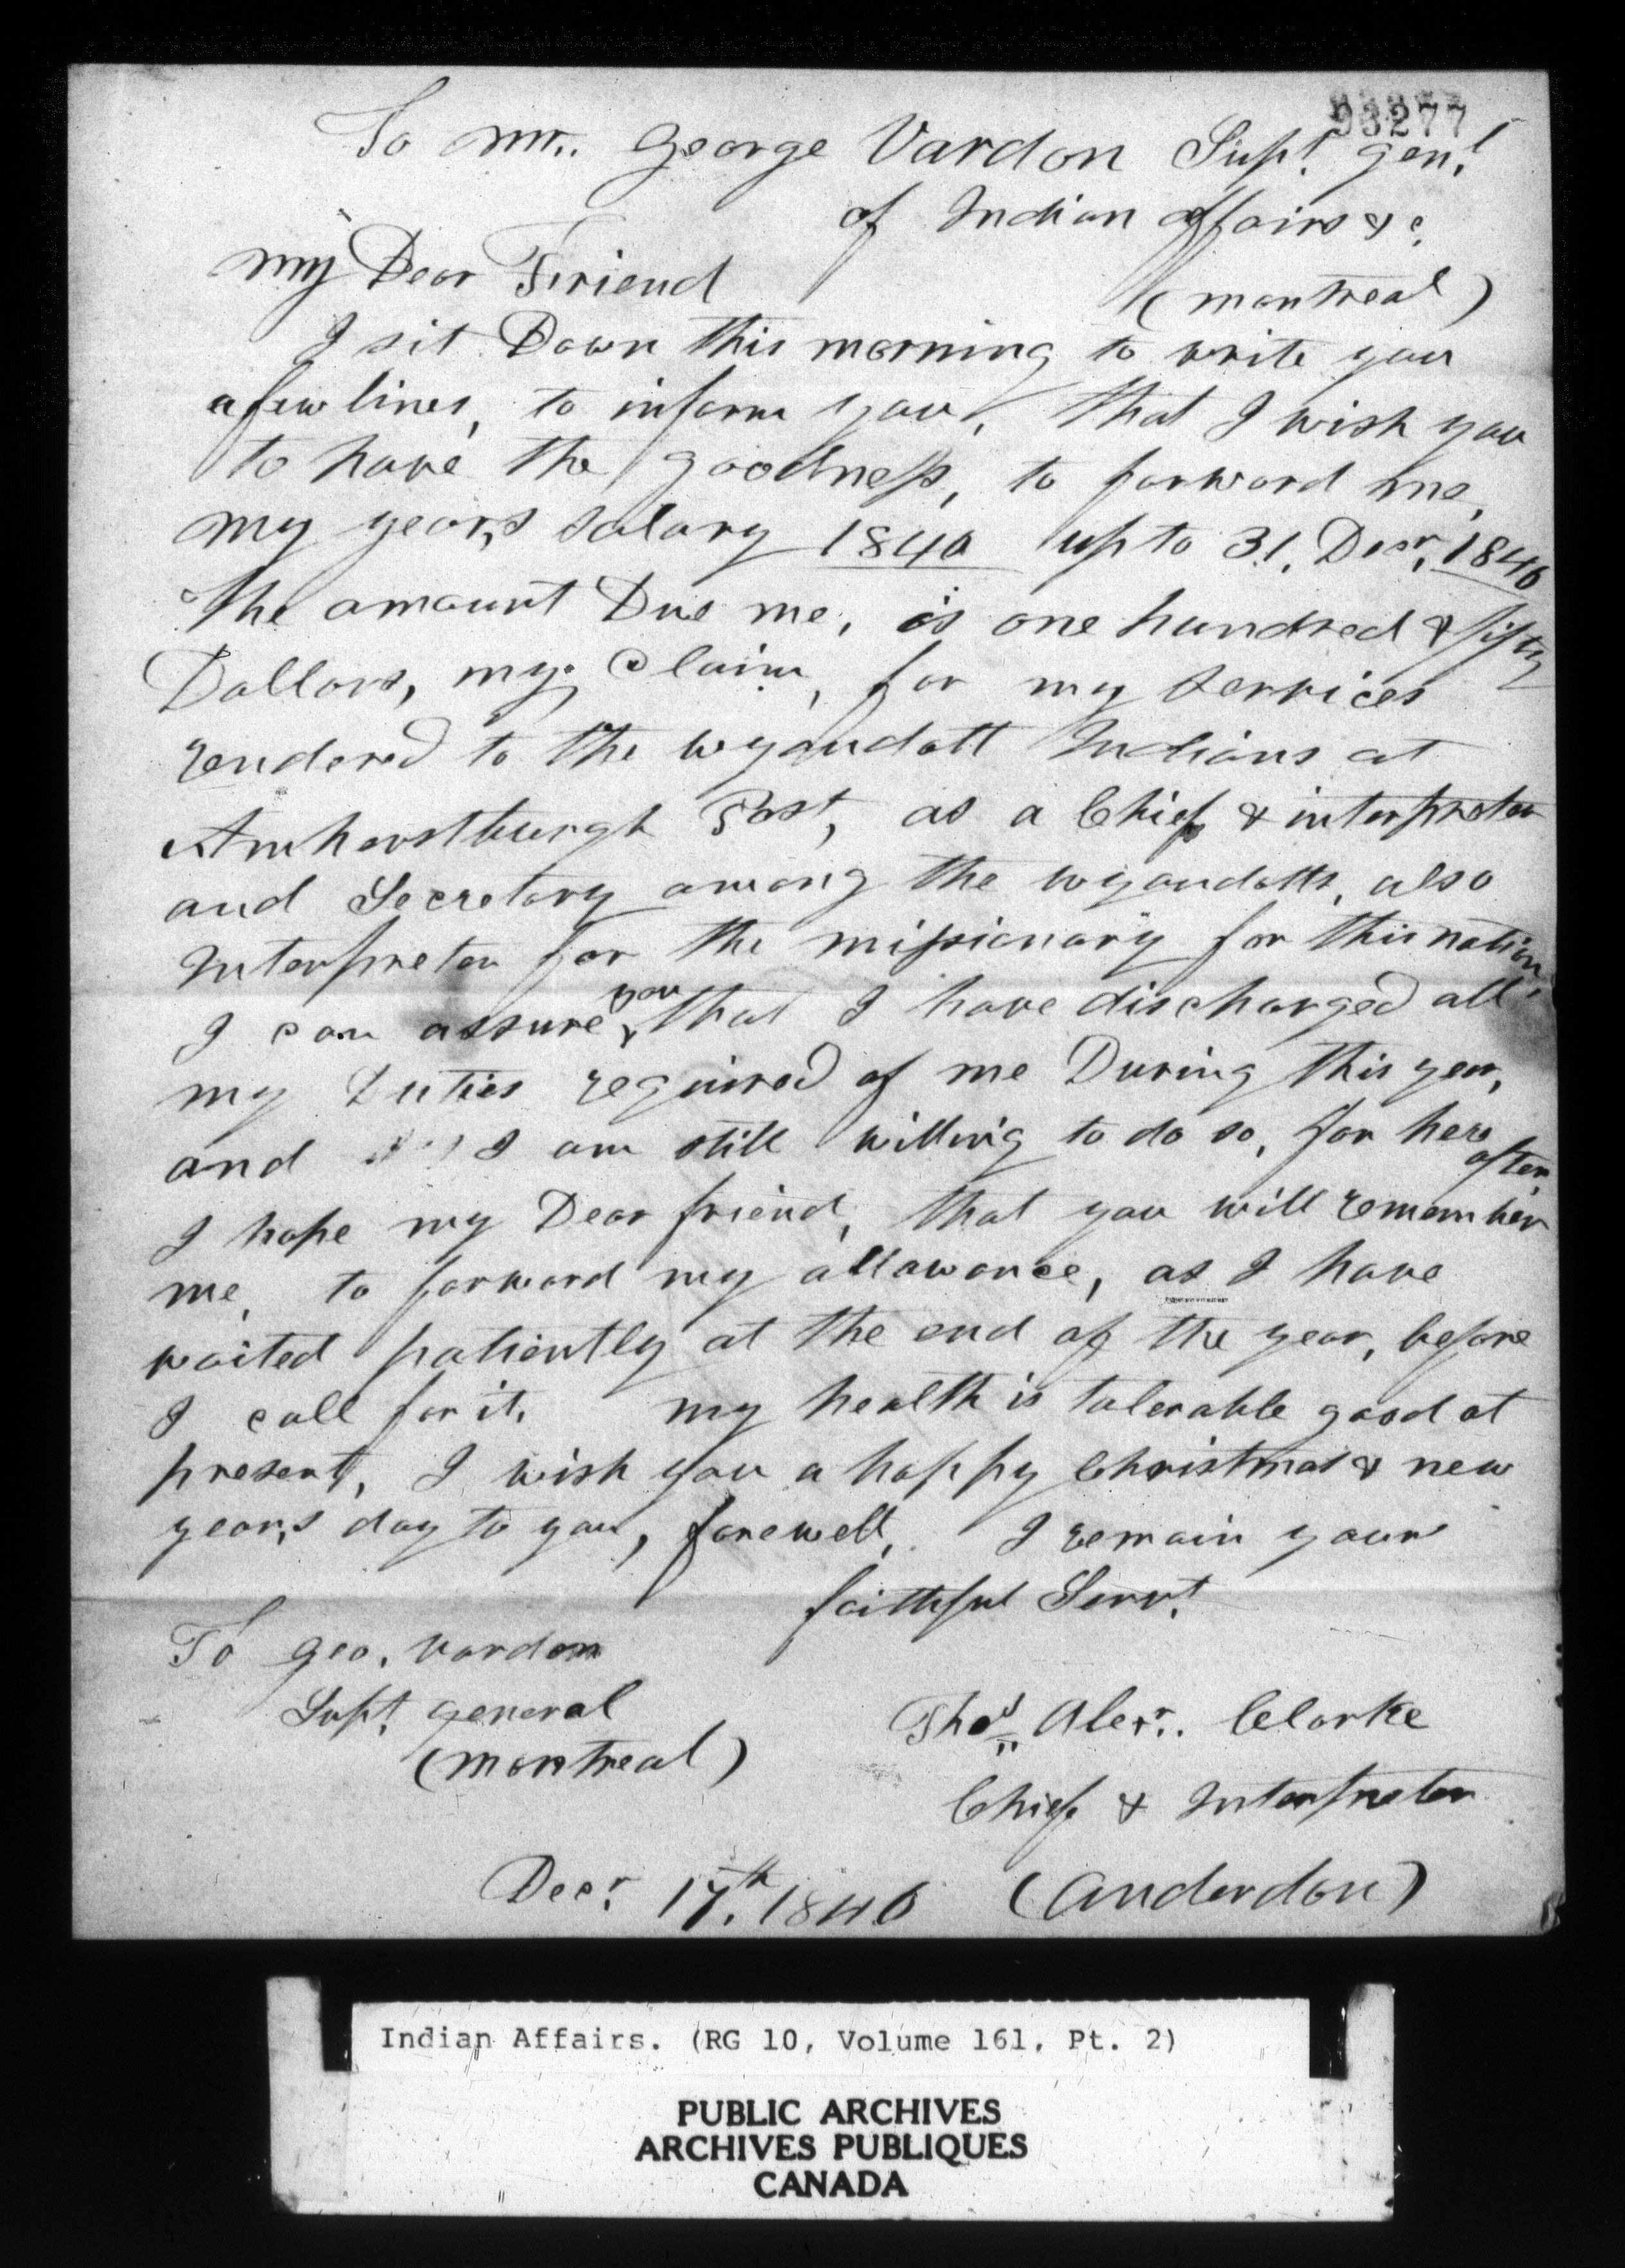 93277
To Mr. George Vardon Supt. Gen.l
of Indian affairs &c.
My Dear Friend
(Montreal)
I sit Down this morning to write you
a few lines, to inform you, that I wish you
to have the goodness, to forward me,
my year,s Salary 1846 up to 31. Decr. 1846
The amount Due me, is one hundred & fifty
Dollars, my Claim, for my Services
rendered to the wyandott Indians at
Amherstburgh Post, as a Chief & interpreter
and Secretary among the wyandotts, also
Interpreter for the missionary for this nation,
I can assure you that I have discharged all
my Duties required of me During this year,
and I am still willing to do so, for here
after
I hope my Dear friend, that you will remember
me, to forward my allowance, as I have
waited patiently at the end of the year, before
I call for it. my health is tolerable good at
present, I wish you a happy Christmas & new
year,s day to you, farewell, I remain your
faithful Servt.
To Geo. Vardon
Supt. General
(Montreal)
Thos. Alexr. Clarke
Chief & Interpreter
Decr. 17th. 1846 (Anderdon)
Indian Affairs. (RG 10, Volume 161, Pt. 2)
PUBLIC ARCHIVES
ARCHIVES PUBLIQUES
CANADA